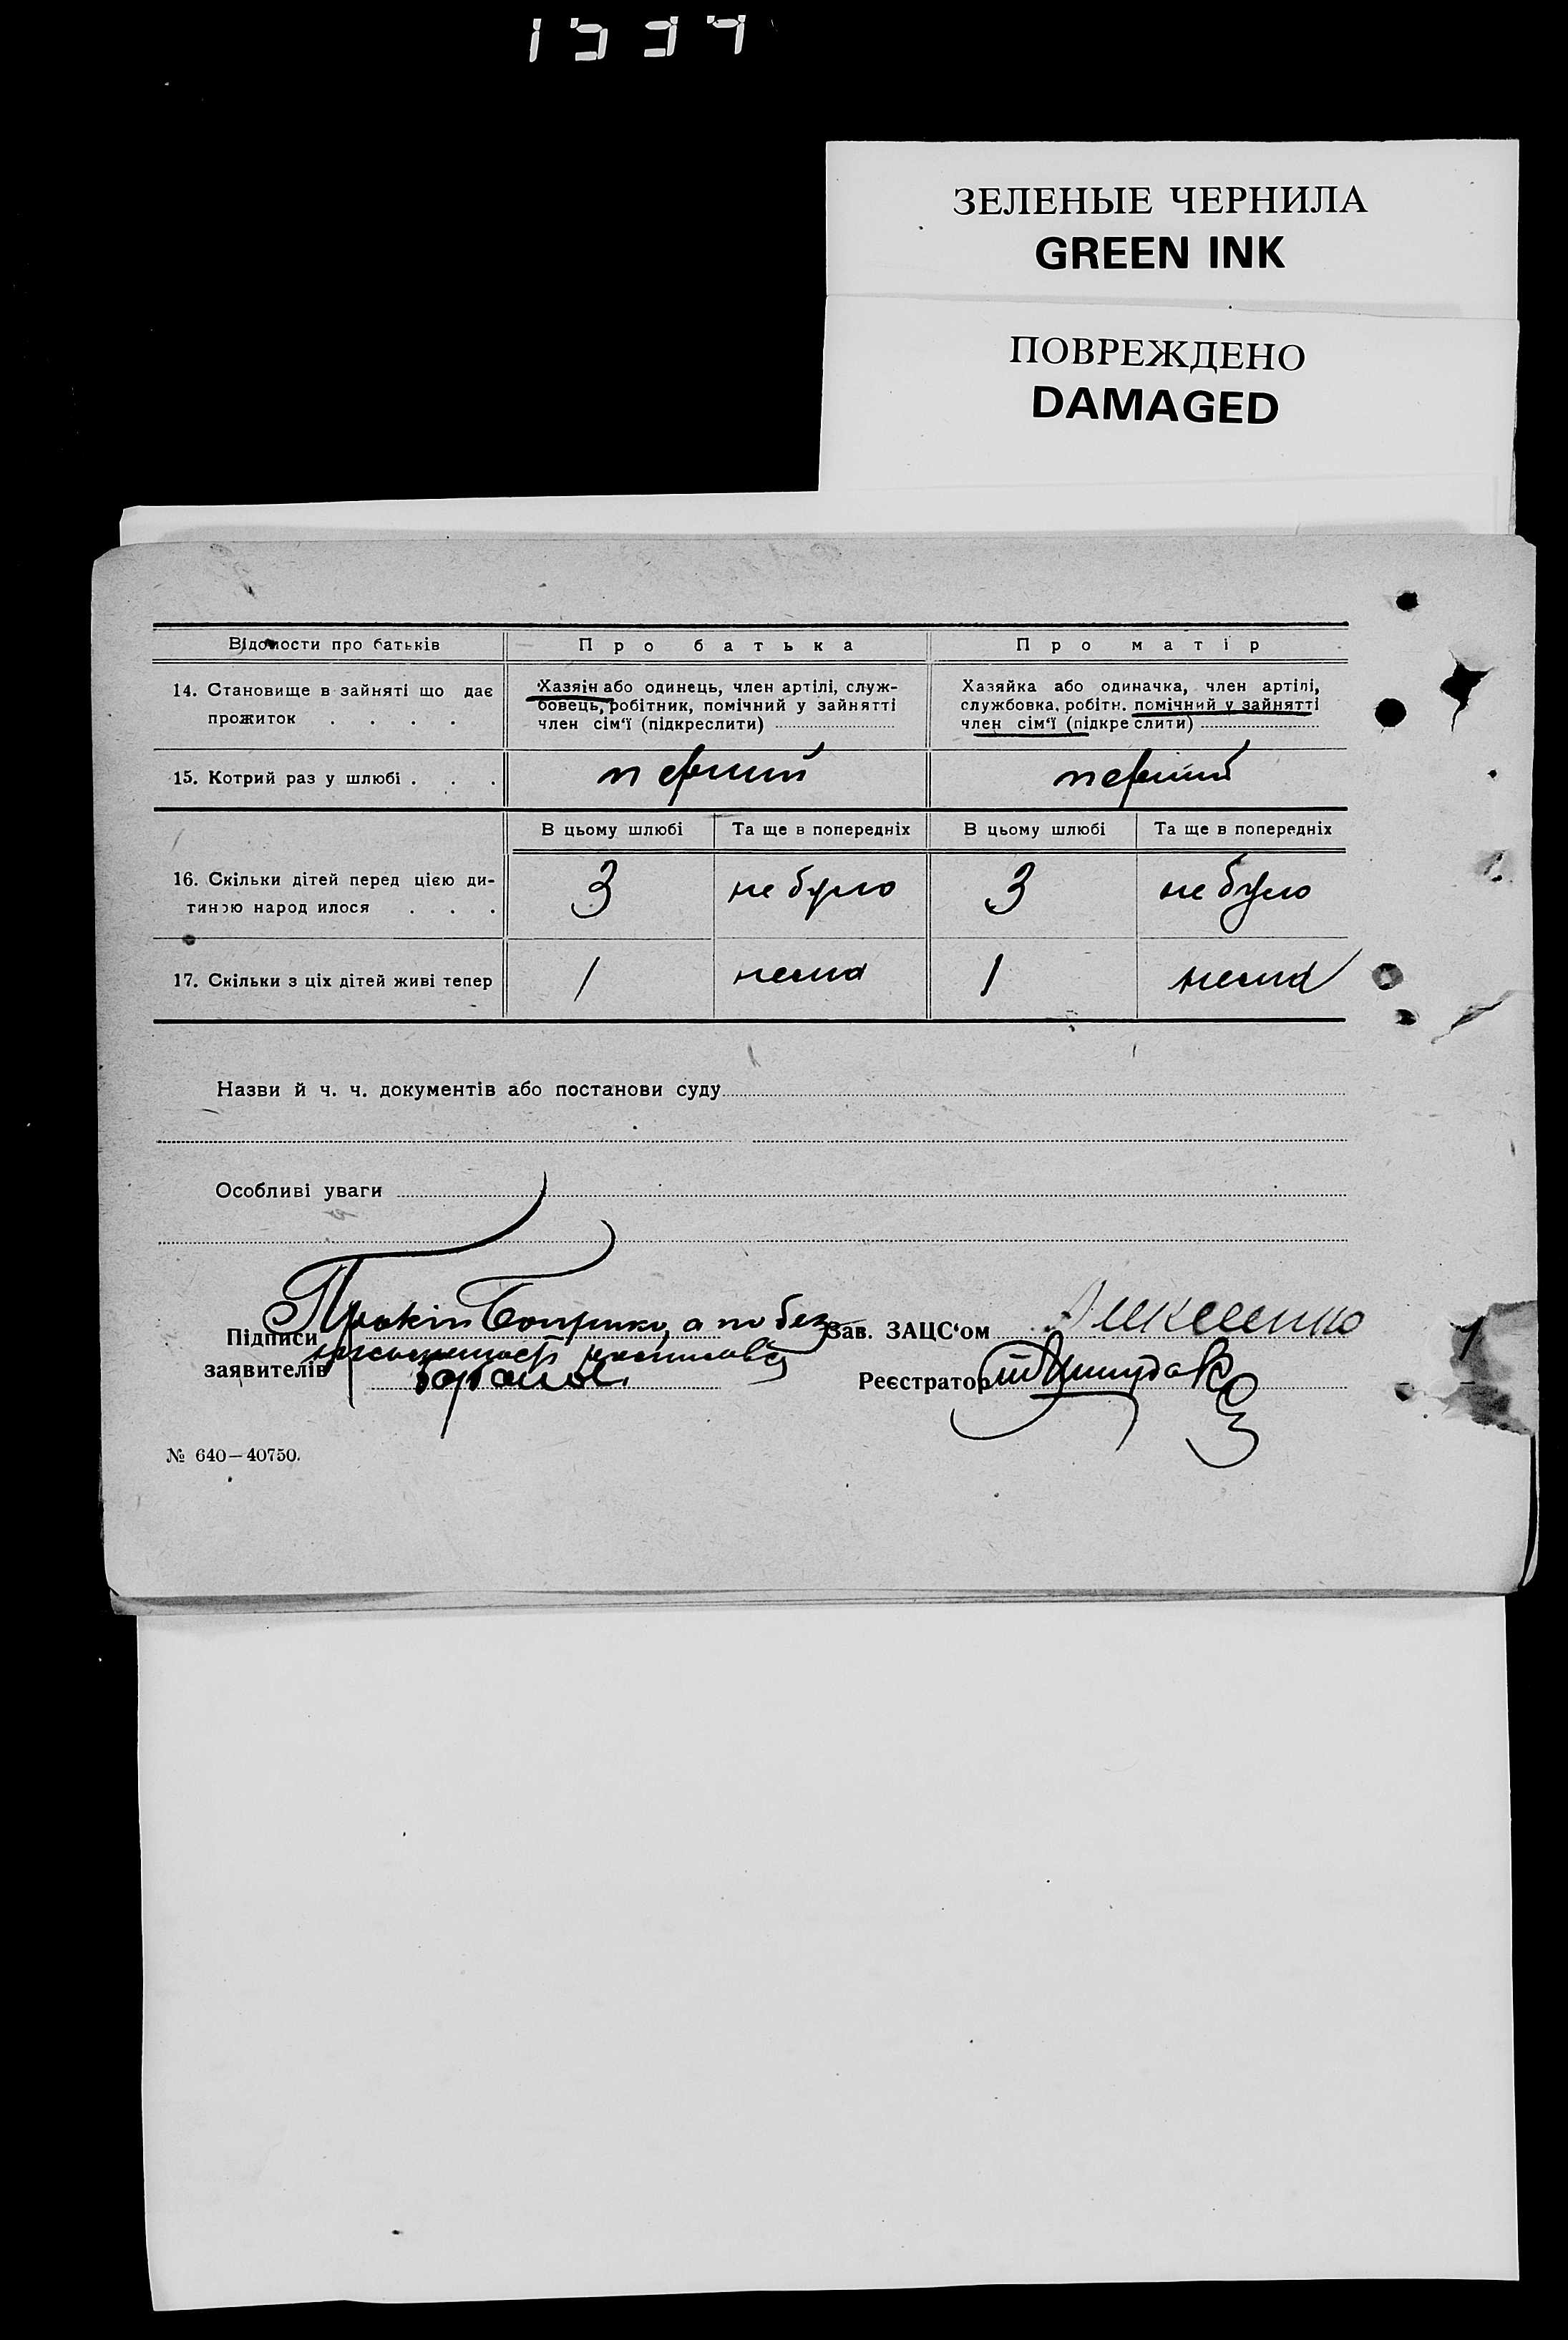 ЗЕЛЕНЫЕ ЧЕРНИЛА
GREEN INK
ПОВРЕЖДЕНО
DAMAGED
Відомости про батьків
Про батька
Про матір
14. Становище в зайняті що дає
прожиток . . . .
Хазяїн або одинець, член артілі, служ-
бовець, робітник, помічний у зайнятті
член сім‘ї (підкреслити)
Хазяйка або одиначка, член артілі,
службовка, робітн. помічний у зайнятті
член сім‘ї (підкреслити)
15. Котрий раз у шлюбі . . .
перший
перший
В цьому шлюбі
Та ще в попередніх
В цьому шлюбі
Та ще в попередніх
16. Скільки дітей перед цією ди-
тиною народилося . . .
3
не було
3
не було
17. Скільки з ціх дітей живі тепер
1
нема
1
нема
Назви й ч. ч. документів або постанови суду
Особливі уваги
Підписи
Прокіп а по без
заявителів
Зав. ЗАЦС‘ом
Реєстратор
№ 640—40750.